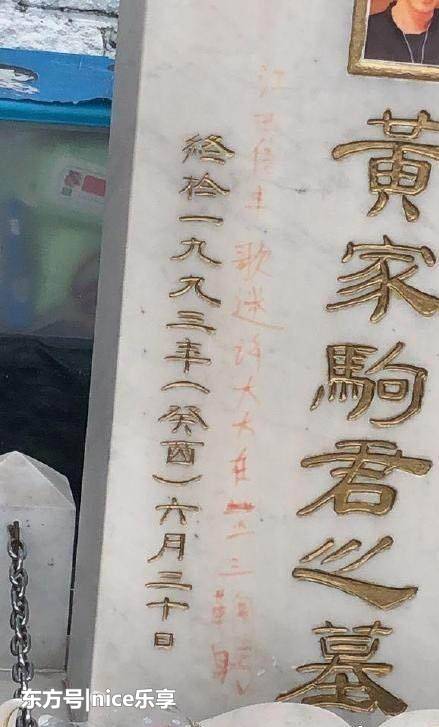 黃家駒君之墓
江西信丰歌迷许大大在三鞠躬
終於一九九三年(癸酉)六月三十日
东方号|nice乐享